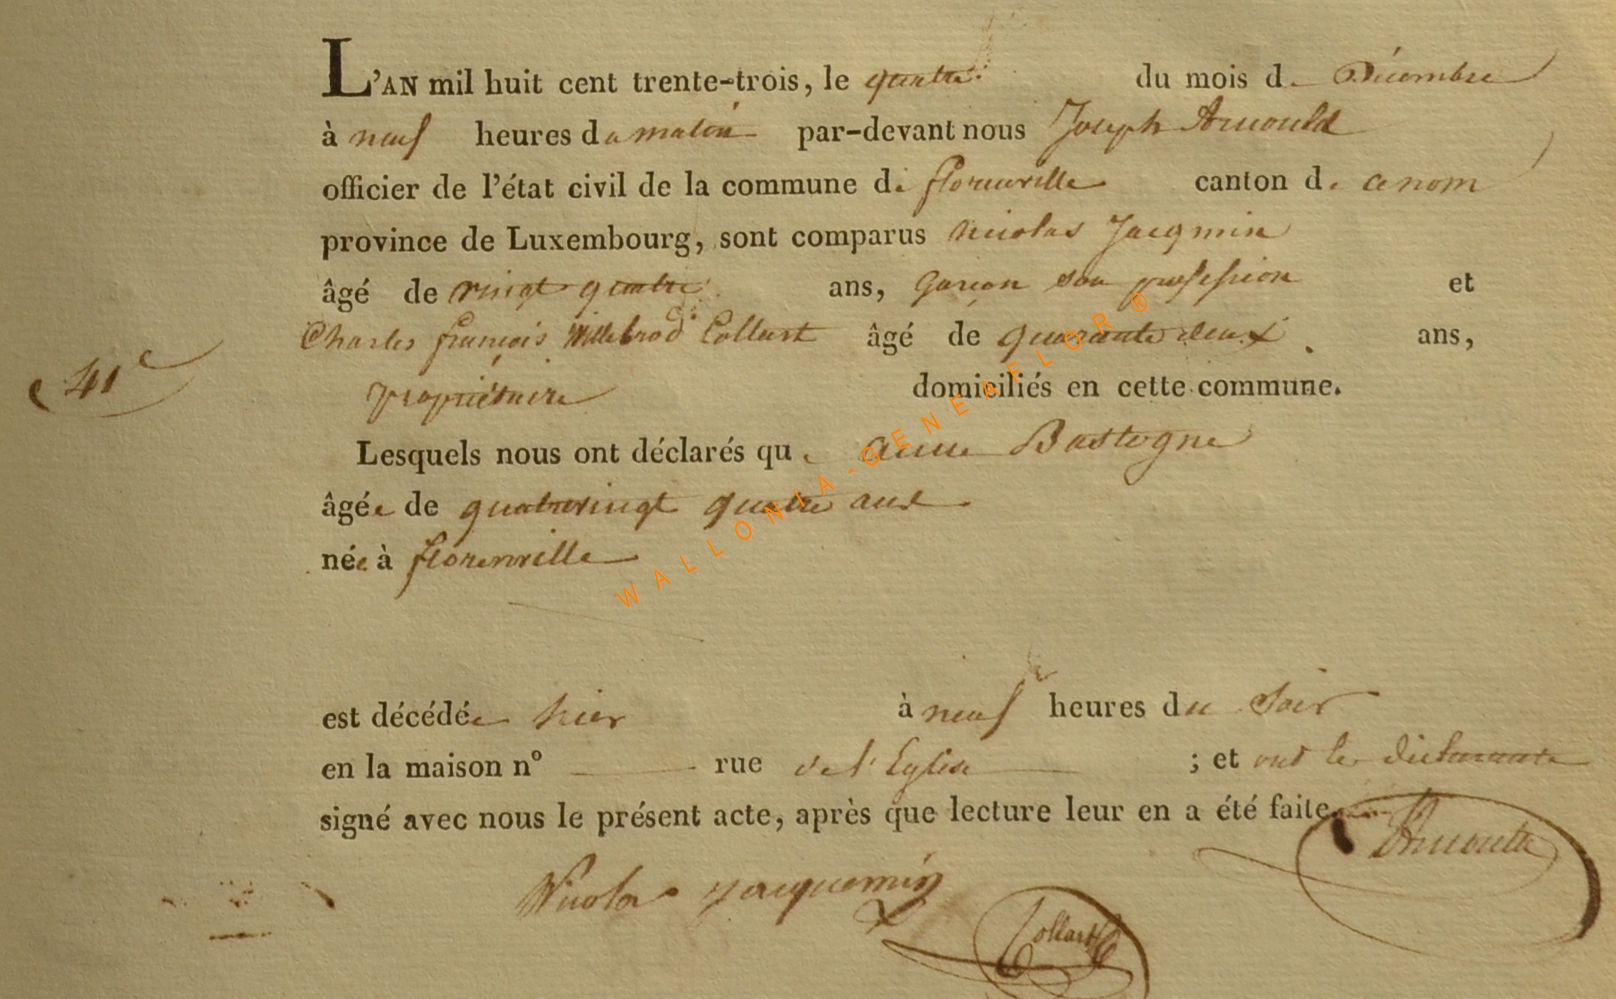 L'AN mil huit cent trente-trois, le quatre du mois de Décembre
à neuf heures du matin par-devant nous Joseph Arnould
officier de l'état civil de la commune de florenville canton de ce nom
province de Luxembourg, sont comparus Nicolas Jacqmin
âgé de vingt quatre ans, Garçon son profession et
Charles françois Willebrod Collart âgé de quarante deux ans,
41e
propriétaire domiciliés en cette commune.
Lesquels nous ont déclarés que anne Bastogne
âgée de quatrevingt quatre ans
née à florenville
est décédée hier à neuf heures du Soir
en la maison n° rue de l'Eglise ; et ont les déclarants
signé avec nous le présent acte, après que lecture leur en a été faite
Arnould
Nicolas Jacquemin
Collart
WALLONIA-GENEAFLOR®